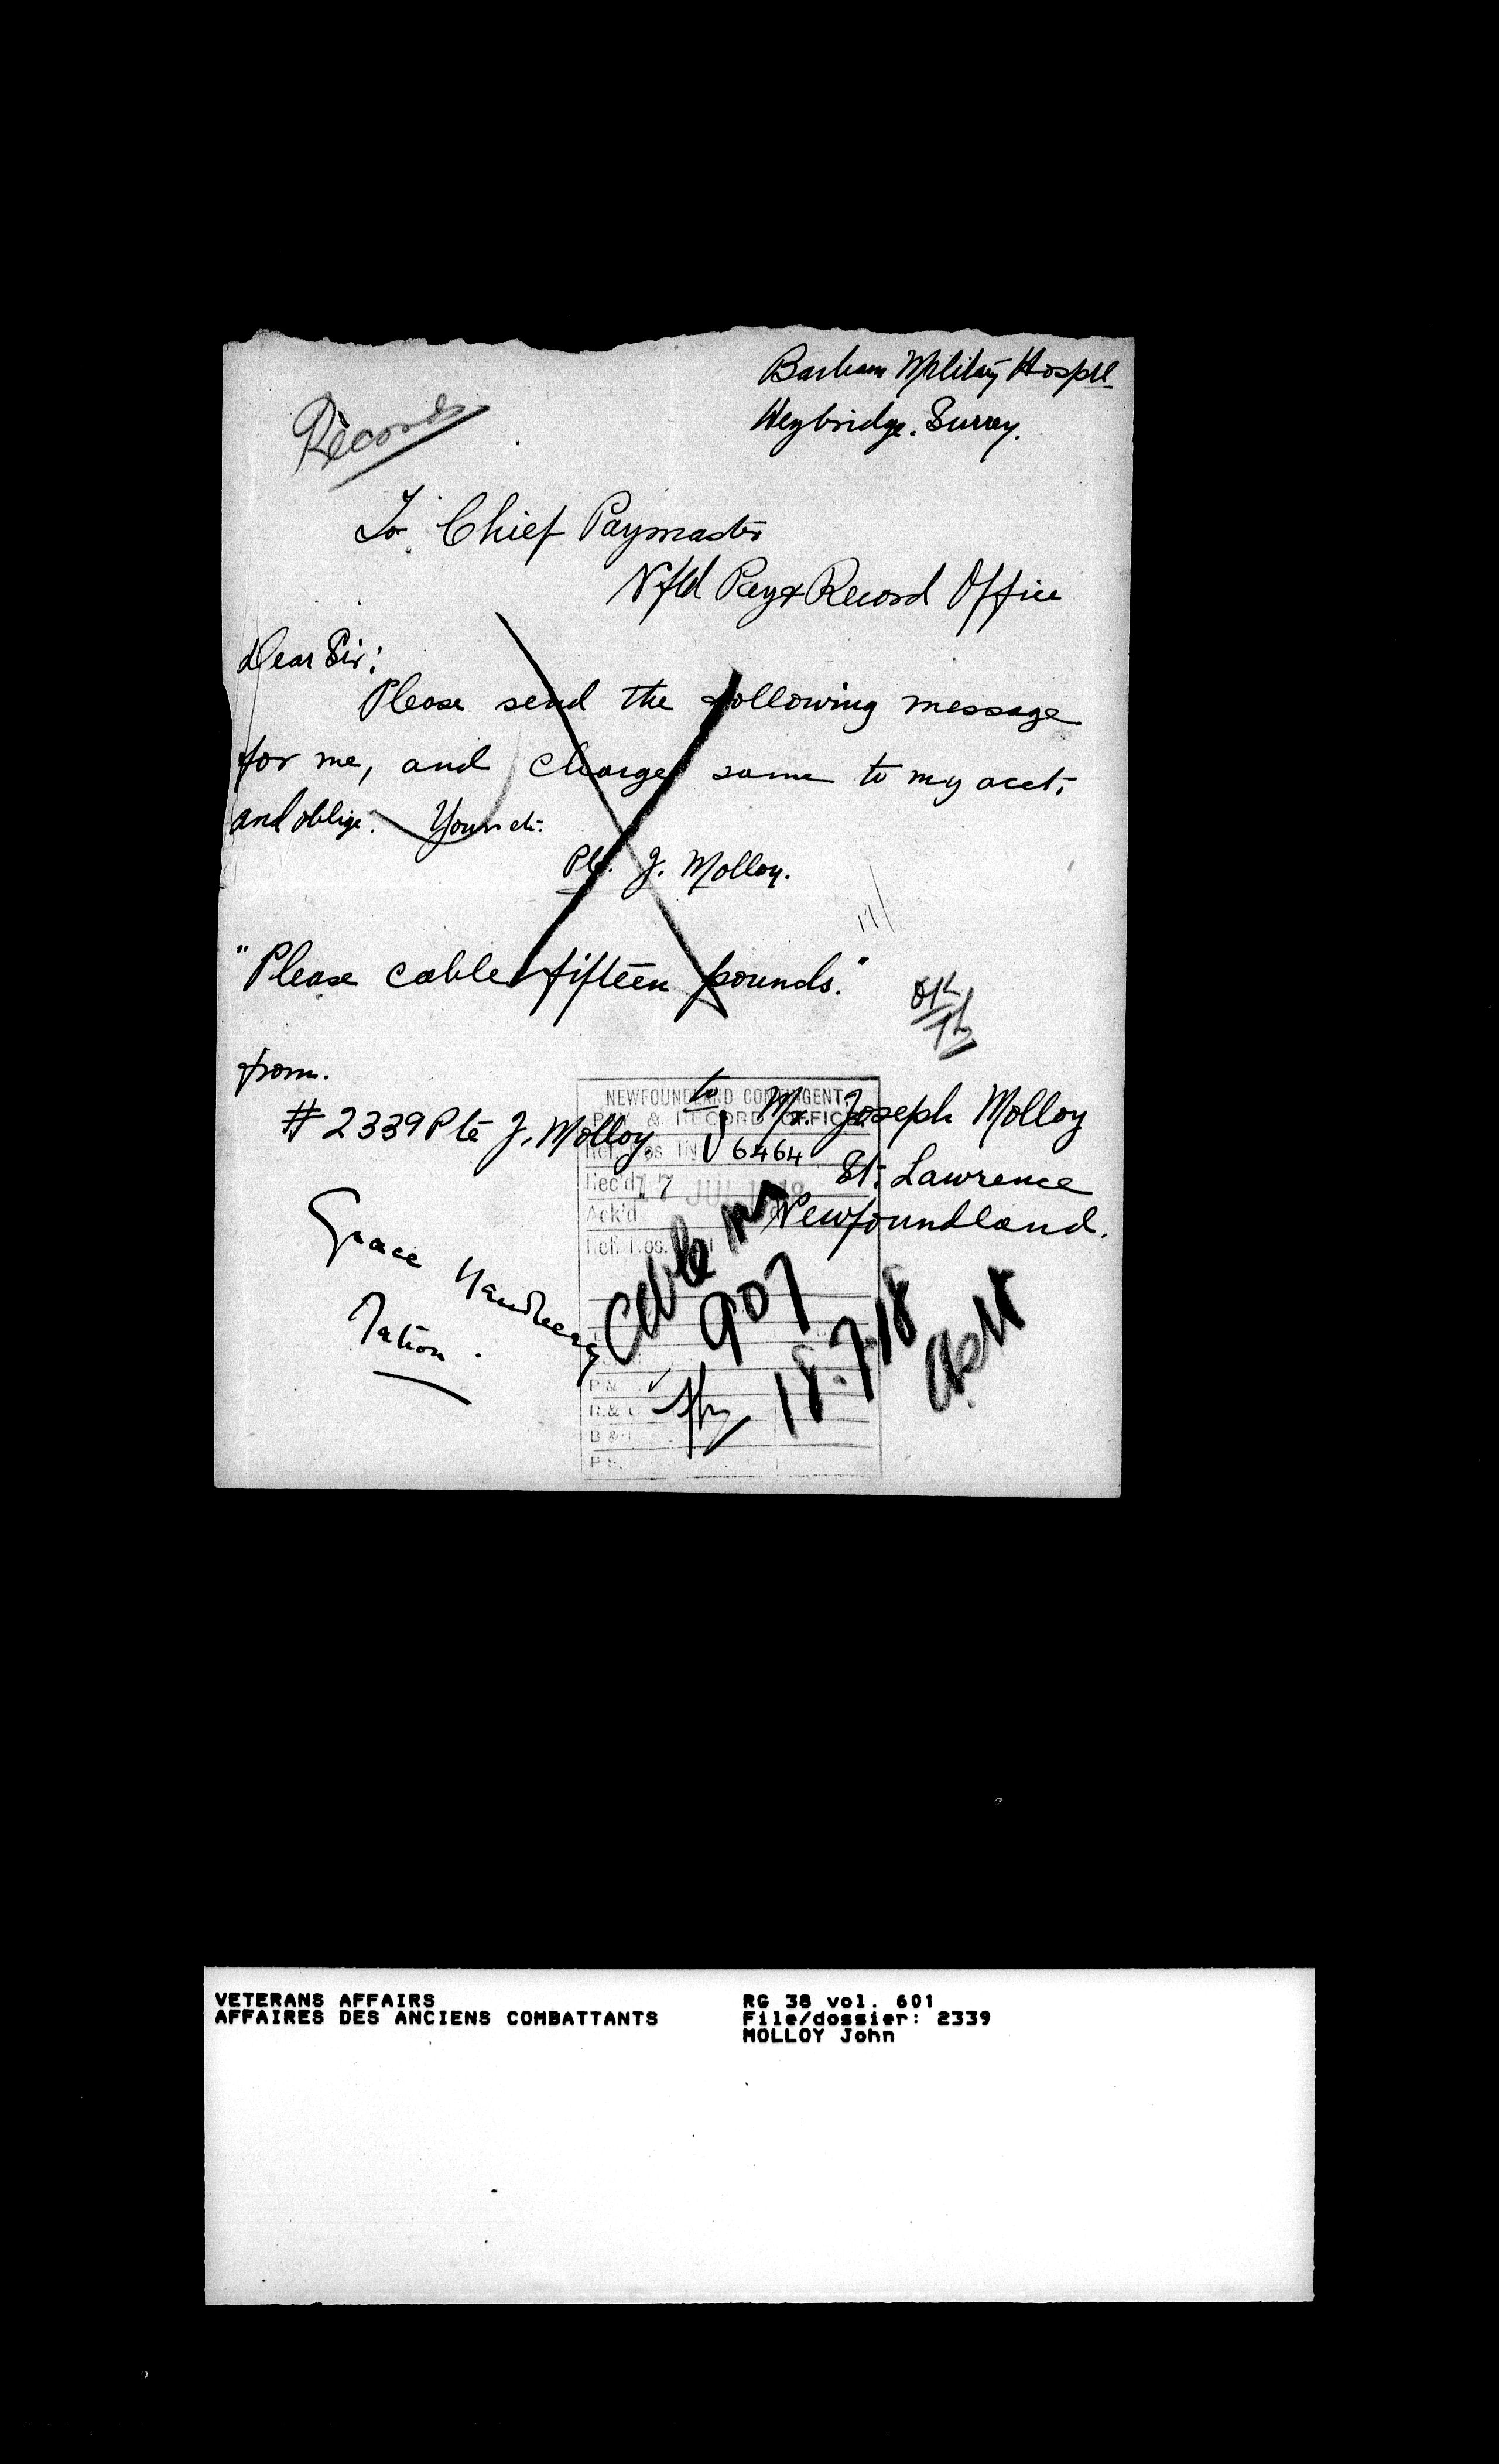 Barham Military Hosptl
Weybridge. Surrey.
Records
To Chief Paymaster
Nfld Pay & Record Office
Dear Sir:
Please send the following message
for me, and charge same to my acct;
and oblige. Yours etc.
Pte. J. Molloy.
"Please cable fifteen pounds."
OK
from.
# 2339 Pte J. Molloy to Mr. Joseph Molloy
St. Lawrence
Newfoundland.
NEWFOUNDLAND CONTINGENT.
PAY & RECORD OFFICE
Ref. Nos. IN 6464
Rec'd 17 JUL 1918
Ack'd
Ref. Nos.
Grace
Matron.
Cable
907
18.7.18
P &
R. &
B &
P
VETERANS AFFAIRS
AFFAIRES DES ANCIENS COMBATTANTS
RG 38 vol. 601
File/dossier: 2339
MOLLOY John